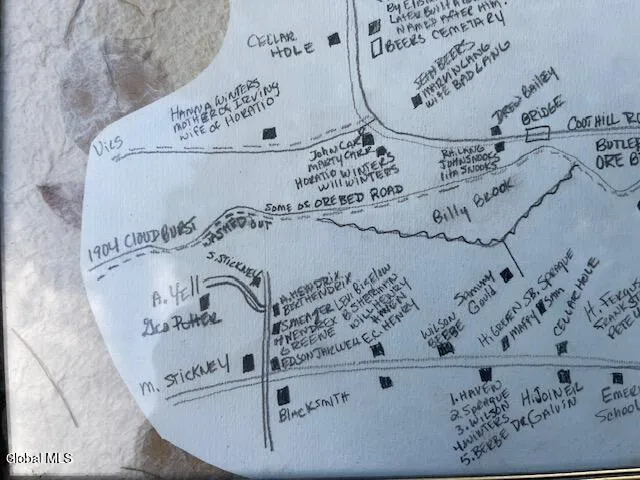 BY EIBA
LATER BUILT A
NAMED AFTER HIM.
BEERS CEMETARY
CELLAR
HOLE
JEAN BEERS
MARVIN LANG
WIFE BAD LANG
HANNA WINTERS
MOTHER OF IRVING
WIFE OF HORATIO
DREW BAILEY
BRIDGE
COOT HILL RO
BUTLER
ORE B
Vies
JOHN CARR
MARTY CARR
HORATIO WINTERS
WILL WINTERS
R.A. LANG
JOHN SNOOKS
SNOOKS
SOME OF OREBED ROAD
Billy BROOK
1904 CLOUDBURST
WASHED OUT
S. STICKNEY
A. Yell
Geo POTTER
A. HENDRIX
BERT HENDRIX
LBV BIGELOW
B SHERMAN
WILL HENRY
HAVEN
E.C. HENRY
EDSON
SAMMY
Gould
WILSON
BEEBE
H. GREEN SR. SPRAGUE
MAPPY
SAM
CELLAR HOLE
H. FERGUS
FRANK
PETE
M. STICKNEY
BLACKSMITH
1. HAVEN
2. SPRAGUE
3. WILSON
4. WINTERS
5. BEEBE
H. JOINER
DR GALVIN
EMER
SCHOOL
Global MLS